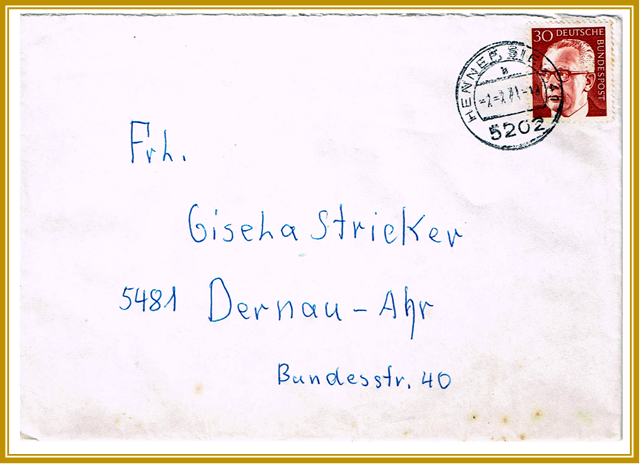 30 DEUTSCHE BUNDESPOST
HENNEF SIEG
5202
Frh.
Giseha Stricker
5481 Dernau-Ahr
Bundesstr. 40